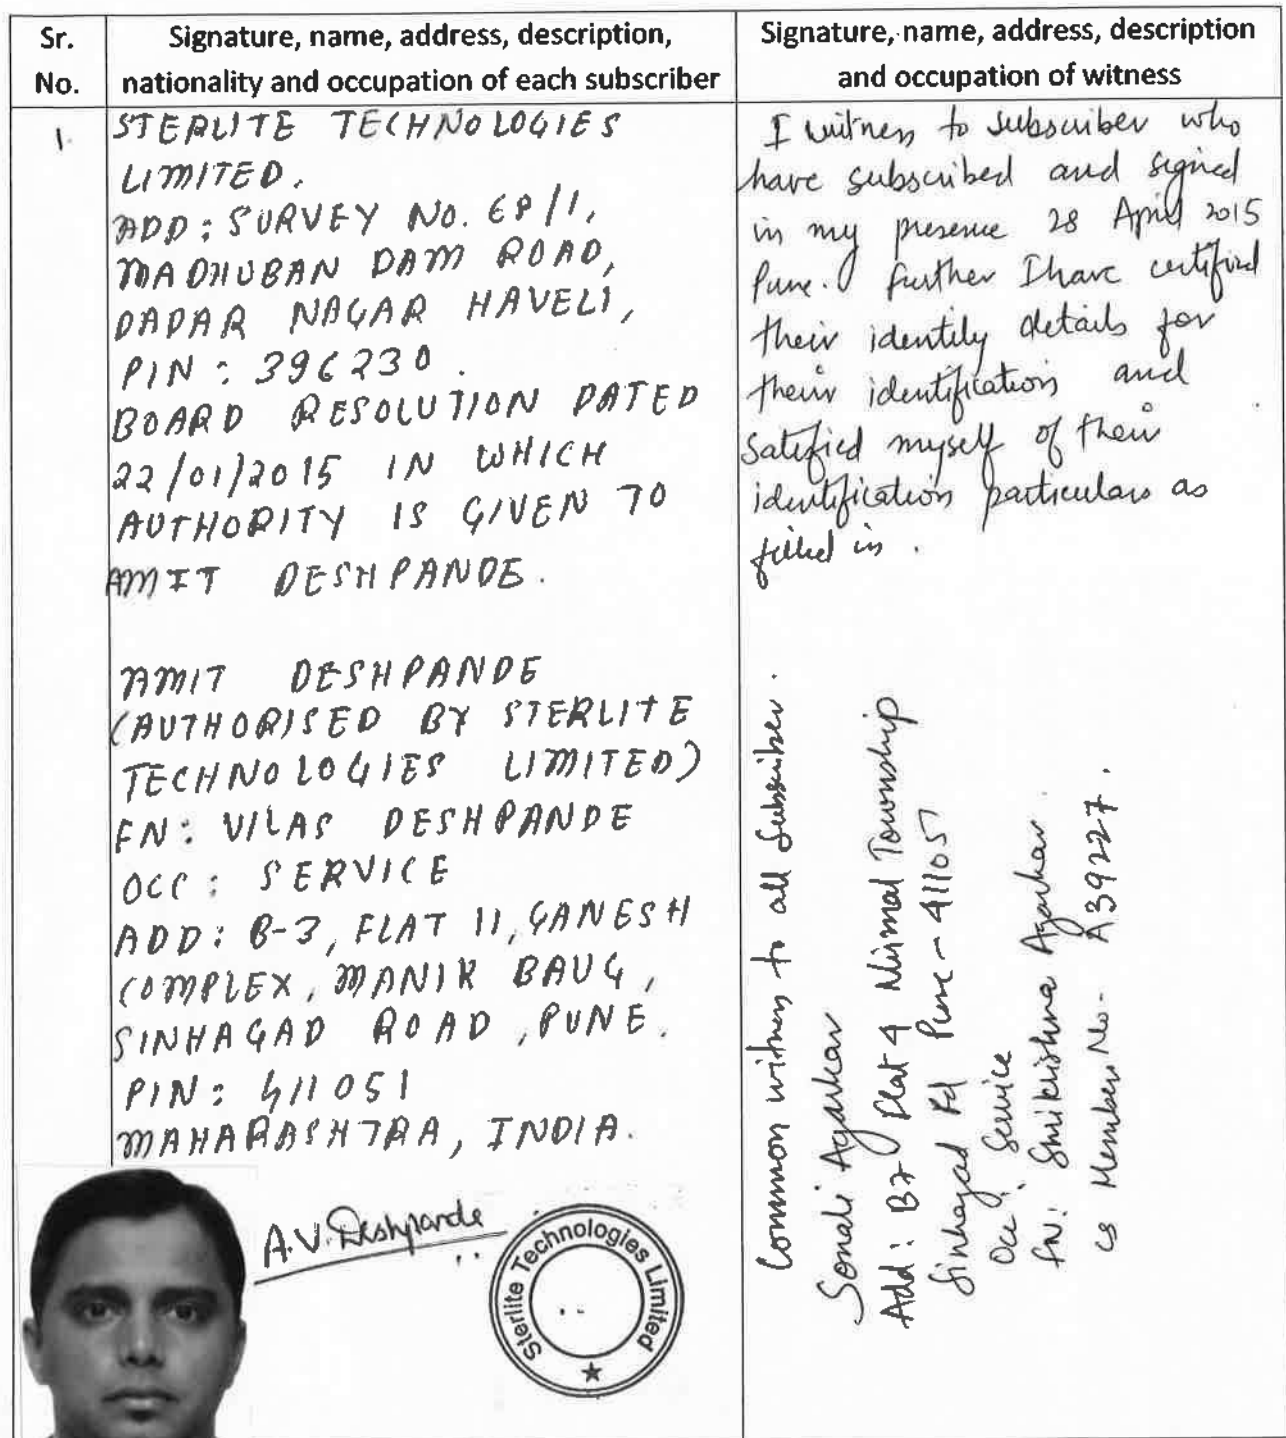 Sr.
No.
Signature, name, address, description,
nationality and occupation of each subscriber
Signature, name, address, description
and occupation of witness
1.
STERLITE TECHNOLOGIES
LIMITED.
ADD: SURVEY NO. 68/1,
MADHUBAN DAM ROAD,
DADAR NAGAR HAVELI,
PIN: 396230.
BOARD RESOLUTION DATED
22/01/2015 IN WHICH
AUTHORITY IS GIVEN TO
AMIT DESHPANDE.
AMIT DESHPANDE
(AUTHORISED BY STERLITE
TECHNOLOGIES LIMITED)
FN: VILAS DESHPANDE
OCC: SERVICE
ADD: B-3, FLAT 11, GANESH
COMPLEX, MANIK BAUG,
SINHAGAD ROAD, PUNE.
PIN: 411051
MAHARASHTRA, INDIA.
A.V. Deshpande
Sterlite Technologies Limited
I witness to subscriber who
have subscribed and signed
in my presence 28 April 2015
Pune. Further I have certified
their identity details for
their identification and
satefied myself of their
identification particulars as
filled in.
Common witness to all Subscriber.
Sonali Agarkar
Add: B2 Flat 4 Nirmal Township
Sinhagad Rd Pune - 411051
Occ: Service
FN: Shrikrishna Agarkar
CS Member No- A39227.